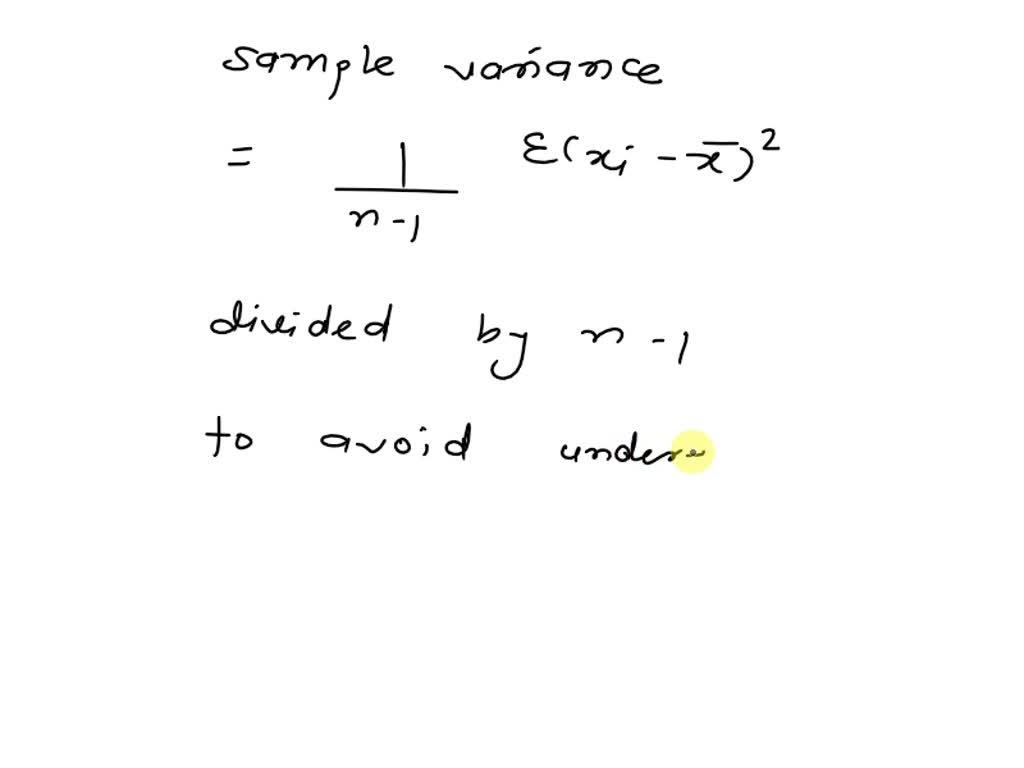 sample variance
= 1/n-1 Σ(xi - x̄)²
divided by n-1
to avoid undere